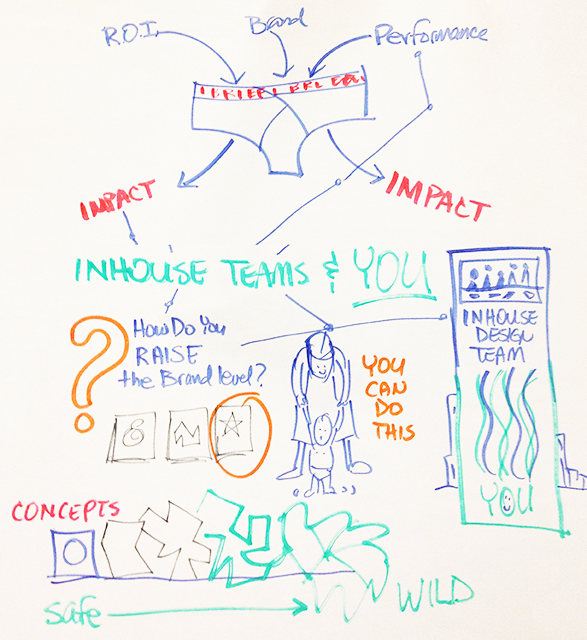 R.O.I.
Brand
Performance
IMPACT
IMPACT
INHOUSE TEAMS & YOU
?
HOW DO YOU
RAISE
the Brand level?
YOU
CAN
DO
THIS
INHOUSE
DESIGN
TEAM
YOU
CONCEPTS
safe
WILD